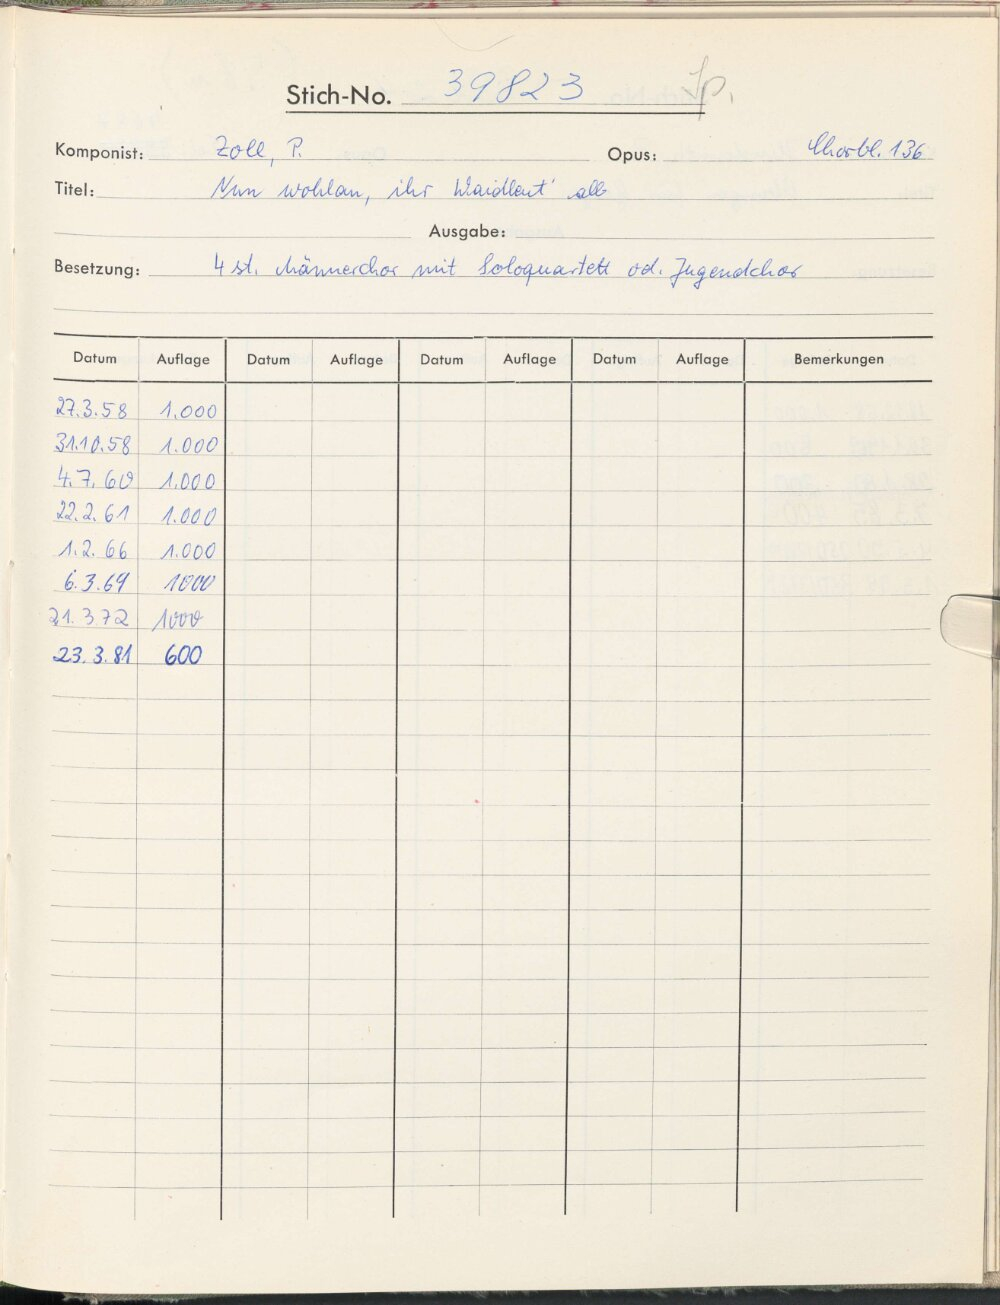 Stich-No. 39823 Sp.
Komponist: Zoll, P. Opus: Chorbl. 136
Titel: Nun wohlan, ihr Waidleut' all
Ausgabe:
Besetzung: 4 st. Männerchor mit Soloquartett od. Jugendchor
Datum Auflage Datum Auflage Datum Auflage Datum Auflage Bemerkungen
27.3.58 1.000
31.10.58 1.000
4.7.60 1.000
22.2.61 1.000
1.2.66 1.000
6.3.69 1000
21.3.72 1000
23.3.81 600